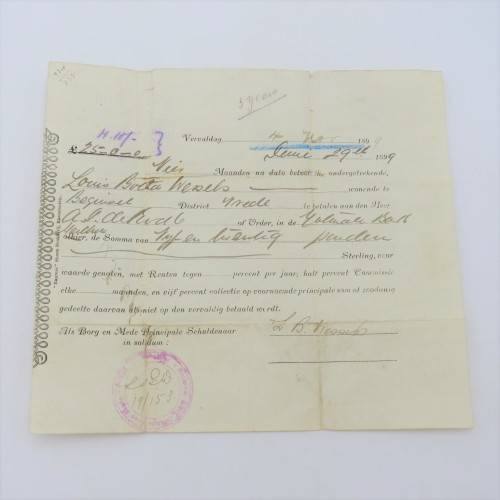 Vervaldag 4 Nov 1899
£ 25-0-0 June 29th 1899
Vier Maanden na dato betaal ondergeteekende,
Louis Botha Wessels wonende te
Beginsel District Vrede te betalen aan den Heer
of Order, in de Natal Bank
alhier, de Somma van Vyf en twentig ponden
Sterling, voor
waarde genoten, met Renten tegen percent per jaar; half percent Commissie
elke maanden, en vijf percent collectie op voornoemde principale som of zoodanig
gedeelte daarvan als niet op den vervaldag betaald wordt.
Als Borg en Mede Principale Schuldenaar
in solidum: L B Wessels